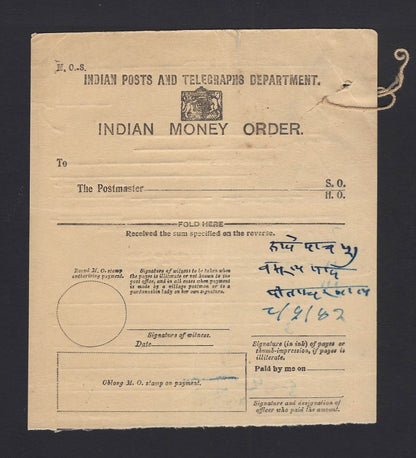 M. O.-8.
INDIAN POSTS AND TELEGRAPHS DEPARTMENT.
INDIAN MONEY ORDER.
To
The Postmaster S. O.
H. O.
FOLD HERE
Received the sum specified on the reverse.
Round M. O. stamp
authorizing payment.
Signature of witness to be taken when
the payee is illiterate or not known to the
post office, and in all cases when payment
is made by a village postman or to a
purdanashin lady on her own signature.
रुपये पाच
Signature of witness.
Date
Signature (in ink) of payee or
thumb-impression, if payee is
illiterate.
Paid by me on
Oblong M. O. stamp on payment.
Signature and designation of
officer who paid the amount.